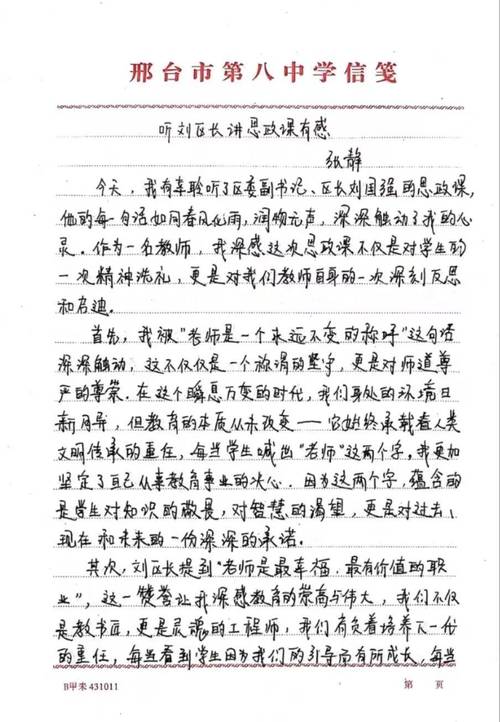 邢台市第八中学信笺
听刘区长讲思政课有感
张静
今天，我有幸聆听了区委副书记、区长刘国强的思政课，
他的每一句话如同春风化雨，润物无声，深深触动了我的心
灵。作为一名教师，我深感这次思政课不仅是对学生的
一次精神洗礼，更是对我们教师自身的一次深刻反思
和启迪。
首先，我被“老师是一个永远不变的称呼”这句话
深深触动，这不仅仅是一个称谓的坚守，更是对师道尊
严的尊崇。在这个瞬息万变的时代，我们身处的环境日
新月异，但教育的本质从未改变——它始终承载着人类
文明传承的重任，每当学生喊出“老师”这两个字，我更加
坚定了自己从事教育事业的决心。因为这两个字，蕴含的
是学生对知识的敬畏，对智慧的渴望，更是对过去、
现在和未来的一份深深的承诺。
其次，刘区长提到“老师是最幸福、最有价值的职
业”，这一赞誉让我深感教育的崇高与伟大，我们不仅
是教书匠，更是灵魂的工程师，我们有负着培养下一代
的重任，每当看到学生因为我们的引导而有所成长，每当
B甲未431011
第 页